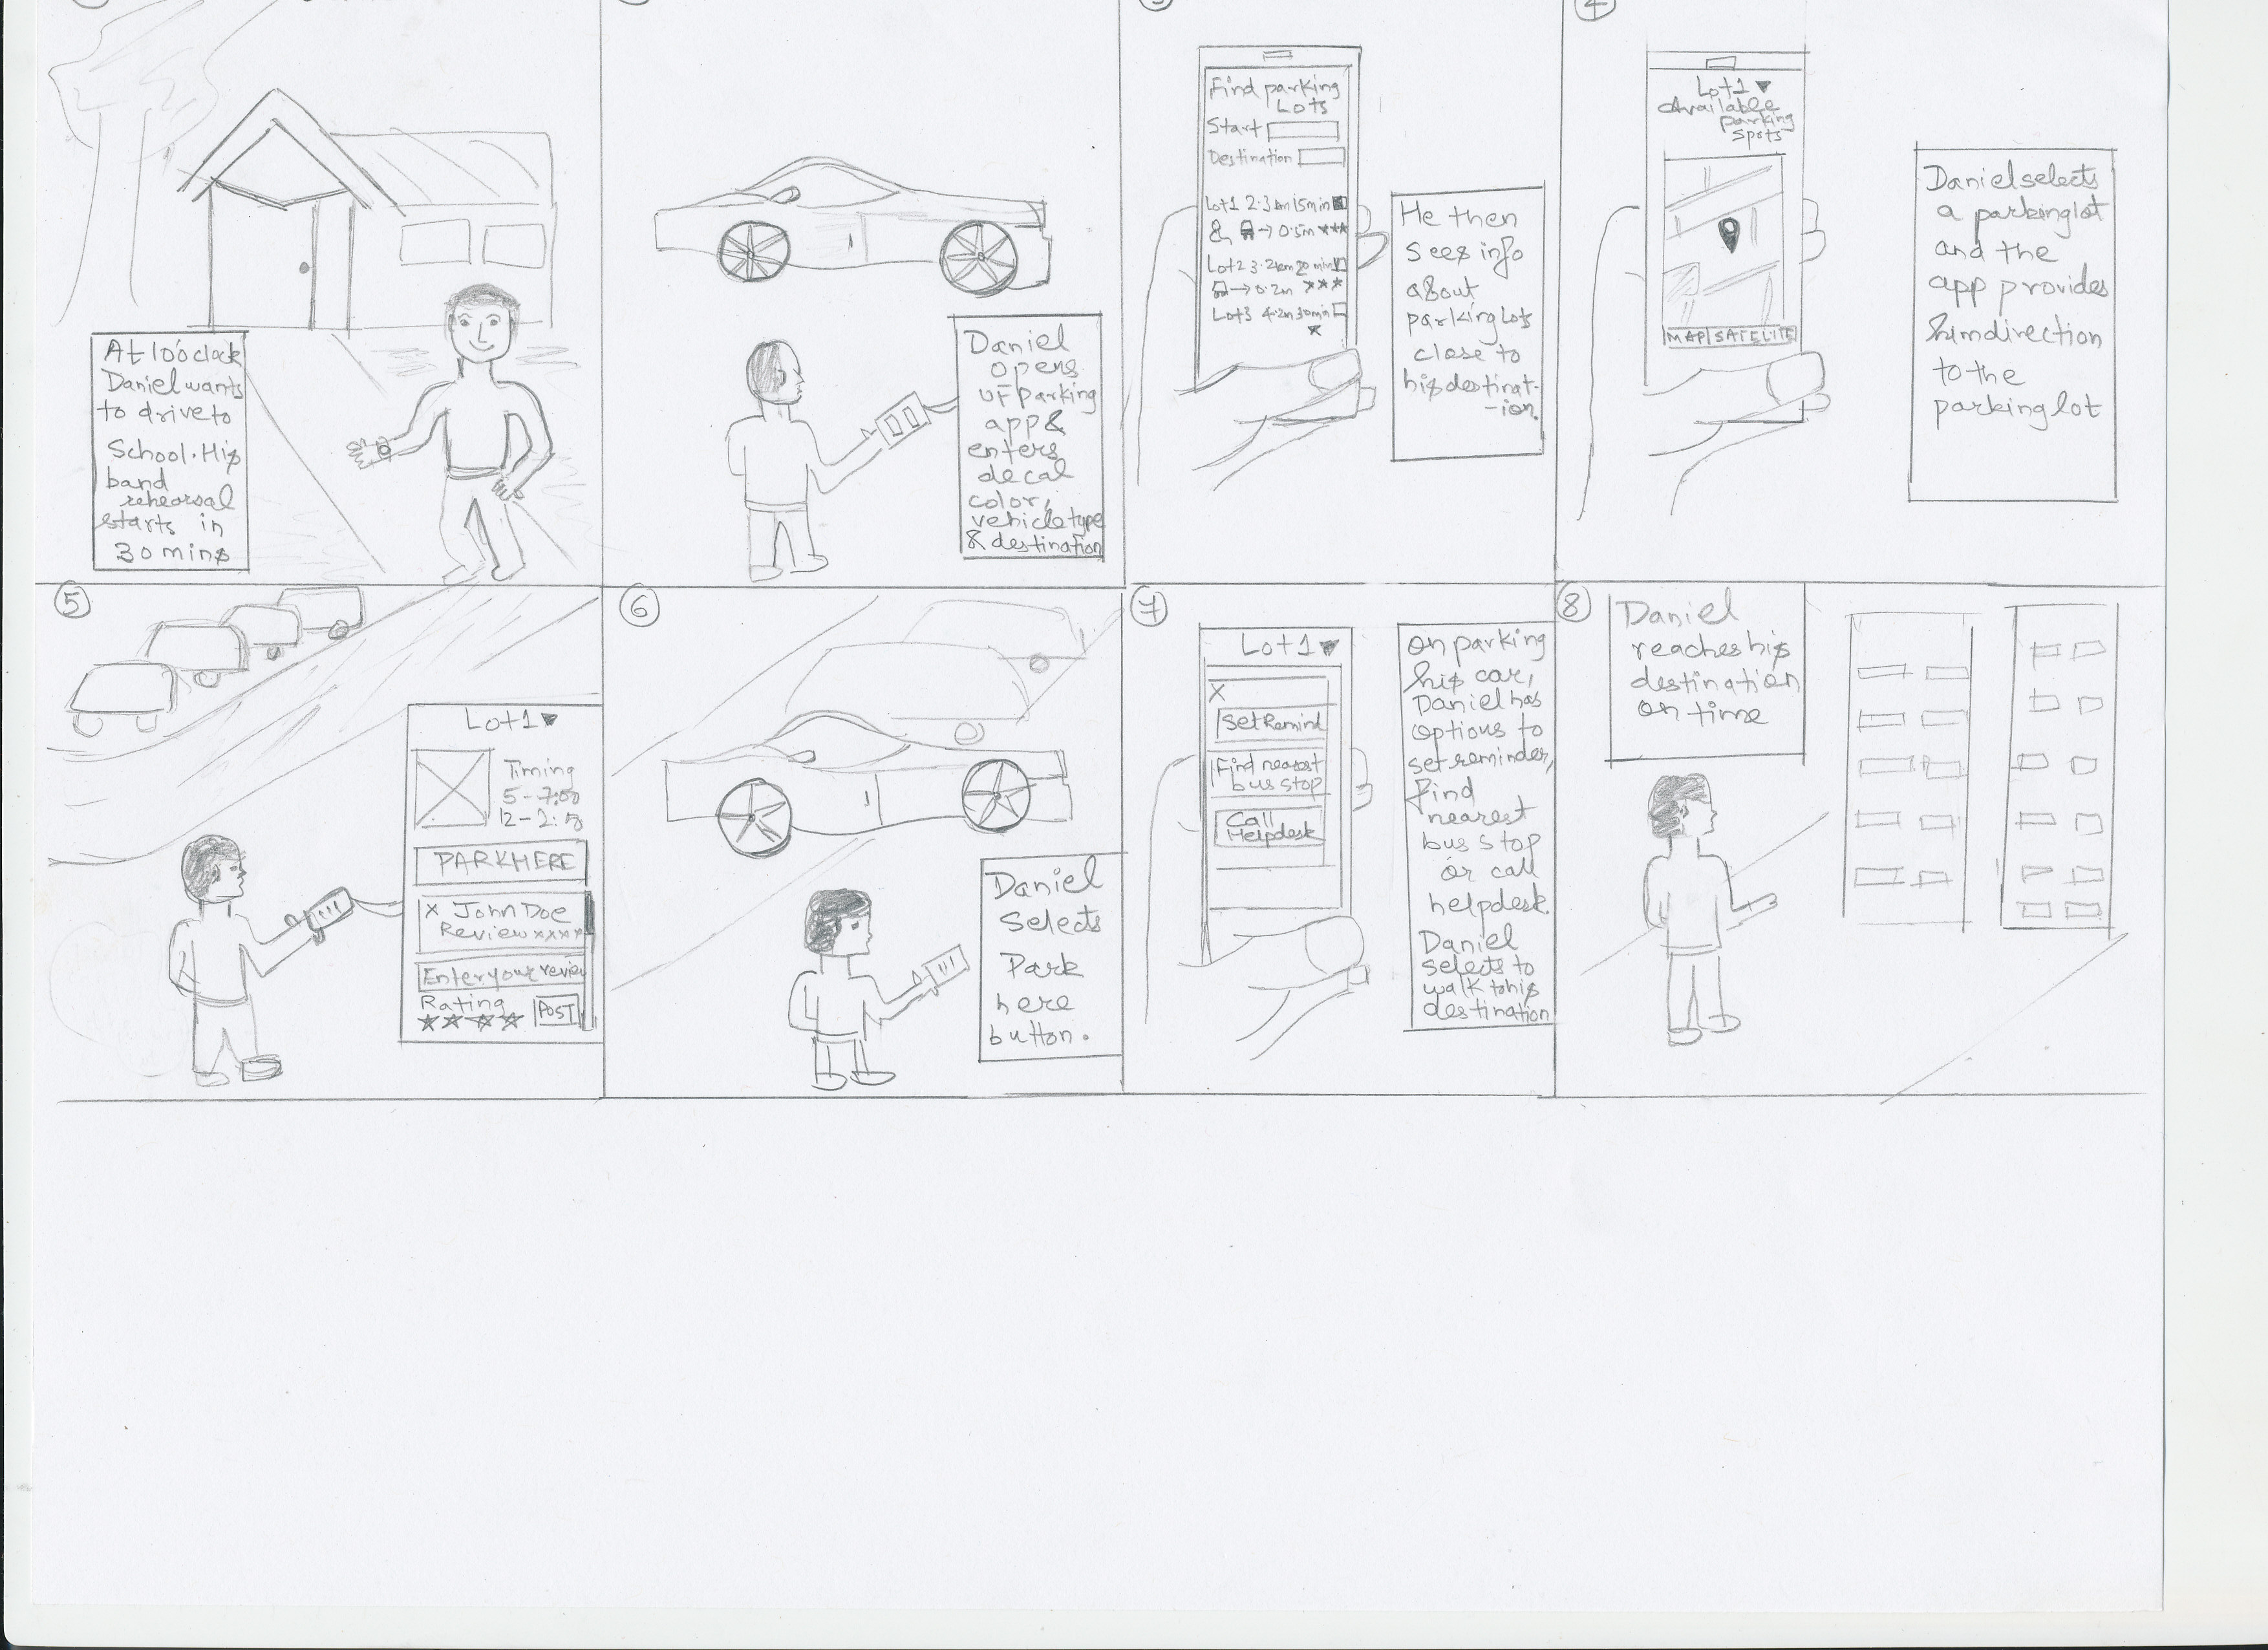 3
4
At 10o'clock
Daniel wants
to drive to
School. His
band
rehearsal
starts in
30 mins
Daniel
opens
UF parking
app &
enters
decal
color,
vehicle type
& destination
Find parking
Lots
Start
Destination
Lot1 2.3 km 15min
→ 0.5m ***
Lot2 3.2km 20 min
→ 0.2m ***
Lot3 4.2m 30min
*
He then
sees info
about
parking lots
close to
his destinat-
-ion.
Lot1
Available
parking
spots
MAP|SATELITE
Daniel selects
a parking lot
and the
app provides
him direction
to the
parking lot
5
Lot1
Timing
5-7:00
12-2:
PARK HERE
x John Doe
Review xxxx
Enter your review
Rating
POST
6
Daniel
selects
Park
here
button.
7
Lot1
X
Set Remind
Find nearest
bus stop
Call
Helpdesk
On parking
his car,
Daniel has
options to
set reminder,
find
nearest
bus stop
or call
helpdesk.
Daniel
selects to
walk to his
destination
8
Daniel
reaches his
destination
on time